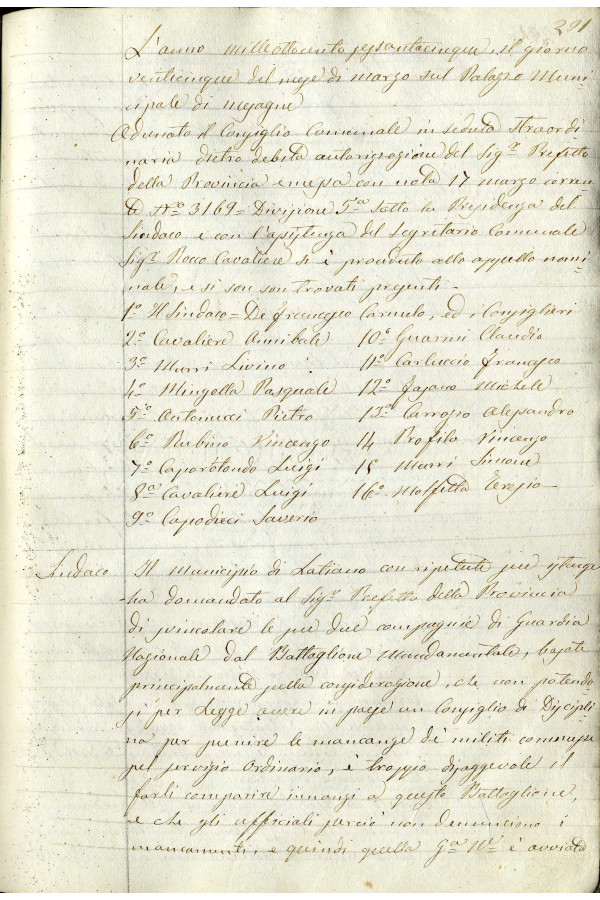 291
L'anno milleottocento sessantacinque, il giorno
venticinque del mese di marzo sul Palazzo Muni
cipale di Mesagne
Adunato il Consiglio Comunale in seduta straordi
naria dietro debita autorizzazione del Sig.r Prefetto
della Provincia emessa con nota 17 marzo corren
te N.o 3169 = Divisione 5.a sotto la Presidenza del
Sindaco e con l'assistenza del Segretario Comunale
Sig.r Rocco Cavaliere si è proceduto allo appello nomi
nale, e si son son trovati presenti -
1.o Il Sindaco = De francesco Carmelo, ed i Consiglieri
2.o Cavaliere Annibale 10.o Guarini Claudio
3.o Murri Livino 11.o Carluccio Francesco
4.o Mingolla Pasquale 12.o Fasaco Michele
5.o Antonucci Pietro 13.o Carrozzo Alessandro
6.o Rubino Vincenzo 14 Profilo Vincenzo
7.o Caporotondo Luigi 15 Murri Simone
8.o Cavaliere Luigi 16.o Molfetta Terezio
9.o Capodieci Saverio
Sindaco Il Municipio di Latiano con ripetute sue istanze
ha domandato al Sig.r Prefetto della Provincia
di svincolare le sue due compagnie di Guardia
Nazionale dal Battaglione Mandamentale, basate
principalmente sulla considerazione, che non potendo
si per Legge avere in paese un Consiglio di Discipli
na per punire le mancanze de' militi commesse
pel servizio ordinario, è troppo disaggevole il
farli comparire innanzi a questo Battaglione,
e che gli ufficiali perciò non denunciono i
mancamenti, e quindi quella G.a N.le è avviata